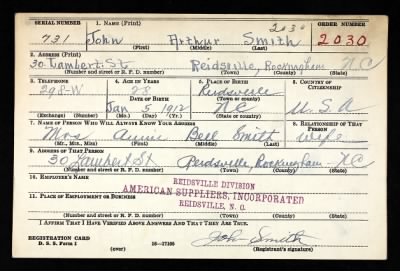 SERIAL NUMBER 1. NAME (Print) ORDER NUMBER
2030
731 John Arthur Smith 2030
(First) (Middle) (Last)
2. ADDRESS (Print)
30 Lambert St Reidsville, Rockingham N.C
(Number and street or R. F. D. number) (Town) (County) (State)
3. TELEPHONE 4. AGE IN YEARS 5. PLACE OF BIRTH 6. COUNTRY OF CITIZENSHIP
298-W 28 Reidsville
DATE OF BIRTH (Town or county)
Jan 5 1912 N C U. S. A
(Exchange) (Number) (Mo.) (Day) (Yr.) (State or country)
7. NAME OF PERSON WHO WILL ALWAYS KNOW YOUR ADDRESS 8. RELATIONSHIP OF THAT PERSON
Mrs Annie Bell Smith wife
(Mr., Mrs., Miss) (First) (Middle) (Last)
9. ADDRESS OF THAT PERSON
30 Lambert St Reidsville, Rockingham N.C
(Number and street or R. F. D. number) (Town) (County) (State)
10. EMPLOYER'S NAME
REIDSVILLE DIVISION
AMERICAN SUPPLIERS, INCORPORATED
11. PLACE OF EMPLOYMENT OR BUSINESS
REIDSVILLE, N. C.
(Number and street or R. F. D. number) (Town) (County) (State)
I AFFIRM THAT I HAVE VERIFIED ABOVE ANSWERS AND THAT THEY ARE TRUE.
REGISTRATION CARD
D. S. S. Form 1 (over) 16-17105 John Smith
(Registrant's signature)